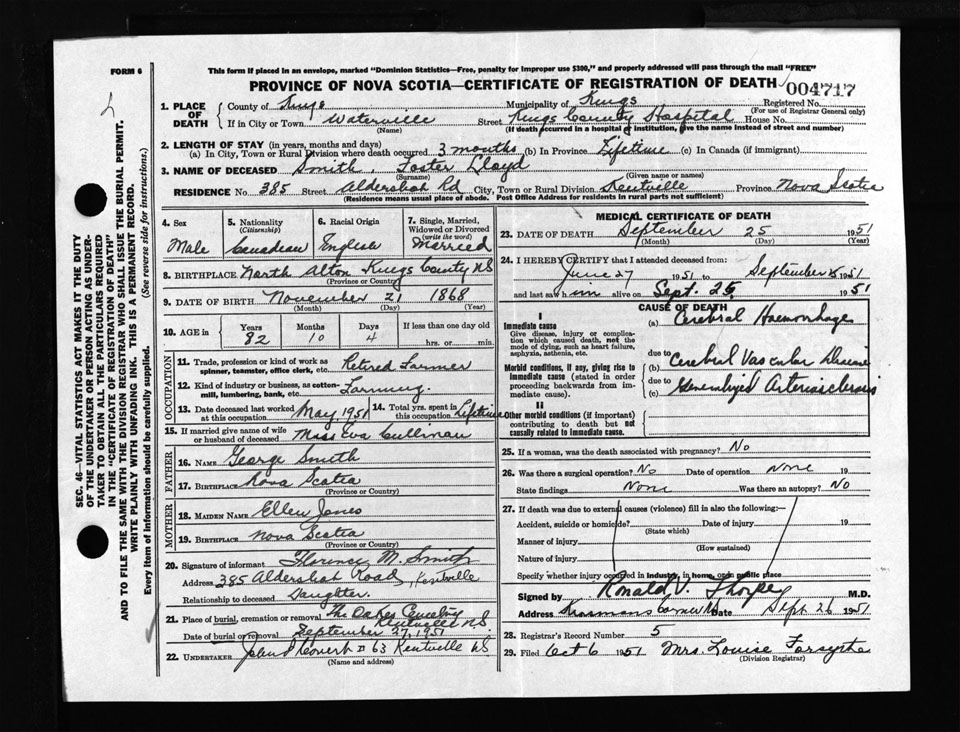 FORM 6
This form if placed in an envelope, marked "Dominion Statistics—Free, penalty for improper use $300," and properly addressed will pass through the mail "FREE"
PROVINCE OF NOVA SCOTIA—CERTIFICATE OF REGISTRATION OF DEATH
004717
1. PLACE OF DEATH
County of Kings Municipality of Kings Registered No.
(For use of Registrar General only)
If in City or Town Waterville Street Kings County Hospital House No.
(Name) (If death occurred in a hospital or institution, give the name instead of street and number)
2. LENGTH OF STAY (in years, months and days)
(a) In City, Town or Rural Division where death occurred 3 months (b) In Province Lifetime (c) In Canada (if immigrant)
3. NAME OF DECEASED Smith, Foster Lloyd
(Surname) (Given name or names)
RESIDENCE No. 385 Street Aldershot Rd City, Town or Rural Division Kentville Province Nova Scotia
(Residence means usual place of abode. Post Office Address for residents in rural parts not sufficient)
4. Sex
Male
5. Nationality (Citizenship)
Canadian
6. Racial Origin
English
7. Single, Married, Widowed or Divorced (write the word)
Married
8. BIRTHPLACE North Alton Kings County NS
(Province or Country)
9. DATE OF BIRTH November 21 1868
(Month) (Day) (Year)
10. AGE in Years Months Days If less than one day old
82 10 4 hrs. or min.
OCCUPATION
11. Trade, profession or kind of work as spinner, teamster, office clerk, etc. Retired Farmer
12. Kind of industry or business, as cotton-mill, lumbering, bank, etc. Farming
13. Date deceased last worked at this occupation May, 1951
14. Total yrs. spent in this occupation Lifetime
15. If married give name of wife or husband of deceased Miss Eva Cullinan
FATHER
16. NAME George Smith
17. BIRTHPLACE Nova Scotia
(Province or Country)
MOTHER
18. MAIDEN NAME Ellen Jones
19. BIRTHPLACE Nova Scotia
(Province or Country)
20. Signature of informant Florence M. Smith
Address 385 Aldershot Road, Kentville
Relationship to deceased Daughter.
21. Place of burial, cremation or removal The Oakes Cemetery Kentville NS
Date of burial or removal September 27, 1951
22. UNDERTAKER 63 Kentville NS
(Name and address)
MEDICAL CERTIFICATE OF DEATH
23. DATE OF DEATH September 25 1951
(Month) (Day) (Year)
24. I HEREBY CERTIFY that I attended deceased from:
June 27 1951 to September 25 1951
and last saw him alive on Sept. 25, 1951
CAUSE OF DEATH
I
Immediate cause
Give disease, injury or complication which caused death, not the mode of dying, such as heart failure, asphyxia, asthenia, etc.
(a) Cerebral Haemorrhage
due to
Morbid conditions, if any, giving rise to immediate cause (stated in order proceeding backwards from immediate cause)
(b) Cerebral Vascular Disease
due to
(c) Generalized Arteriosclerosis
II
Other morbid conditions (if important) contributing to death but not causally related to immediate cause.
25. If a woman, was the death associated with pregnancy? No
26. Was there a surgical operation? No Date of operation None 19
State findings None Was there an autopsy? No
27. If death was due to external causes (violence) fill in also the following:—
Accident, suicide or homicide? Date of injury 19
(State which)
Manner of injury
(How sustained)
Nature of injury
Specify whether injury occurred in industry, in home, or in public place
Signed by Ronald V. Thorpe M.D.
Address Date Sept 26 1951
28. Registrar's Record Number 5
29. Filed Oct 6 1951 Mrs. Louise Forsythe
(Division Registrar)
SEC. 46—VITAL STATISTICS ACT MAKES IT THE DUTY
OF THE UNDERTAKER OR PERSON ACTING AS UNDER-
TAKER TO OBTAIN ALL THE PARTICULARS REQUIRED
IN THE "CERTIFICATE OF REGISTRATION OF DEATH"
AND TO FILE THE SAME WITH THE DIVISION REGISTRAR WHO SHALL ISSUE THE BURIAL PERMIT.
WRITE PLAINLY WITH UNFADING INK. THIS IS A PERMANENT RECORD.
Every item of information should be carefully supplied. (See reverse side for instructions.)